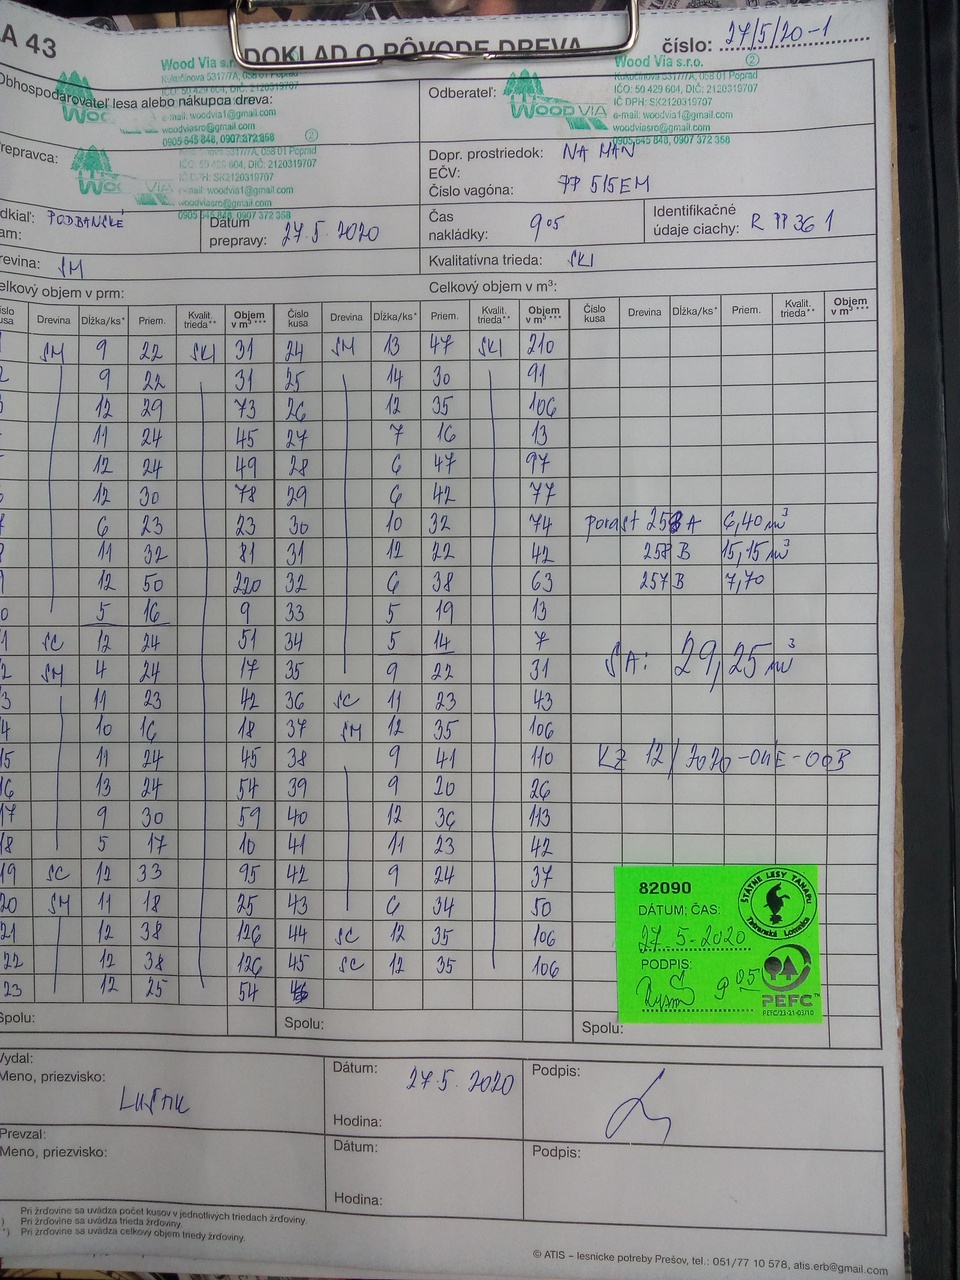 A 43
DOKLAD O PÔVODE DREVA
číslo: 27/5/20-1
Obhospodarovateľ lesa alebo nákupca dreva:
Wood Via s.r.o.
Kukučínova 5317/7A, 058 01 Poprad
IČO: 50 429 604, DIČ: 2120319707
e-mail: woodvia1@gmail.com
woodviasro@gmail.com
0905 645 848, 0907 372 358
Odberateľ:
WOOD VIA
Wood Via s.r.o.
Kukučínova 5317/7A, 058 01 Poprad
IČO: 50 429 604, DIČ: 2120319707
IČ DPH: SK2120319707
e-mail: woodvia1@gmail.com
woodviasro@gmail.com
0905 645 848, 0907 372 358
Prepravca:
5317/7A, 058 01 Poprad
IČO: 50 429 604, DIČ: 2120319707
IČ DPH: SK2120319707
e-mail: woodvia1@gmail.com
woodviasro@gmail.com
0905 645 848, 0907 372 358
Dopr. prostriedok: NA MAN
EČV:
Číslo vagóna: PP 515EM
Odkiaľ: PODBANSKÉ
Kam:
Dátum
prepravy: 27.5.2020
Čas
nakládky: 9 05
Identifikačné
údaje ciachy: R PP 36 1
Drevina: SM
Kvalitatívna trieda: SKI
Celkový objem v prm:
Celkový objem v m³:
Číslo kusa Drevina Dĺžka/ks* Priem. Kvalit. trieda** Objem v m³ *** Číslo kusa Drevina Dĺžka/ks* Priem. Kvalit. trieda** Objem v m³ *** Číslo kusa Drevina Dĺžka/ks* Priem. Kvalit. trieda** Objem v m³ ***
1 SM 9 22 SKI 31 24 SM 13 47 SKI 210
2 9 22 31 25 14 30 91
12 29 73 26 12 35 106
11 24 45 27 7 16 13
12 24 49 28 6 47 97
12 30 78 29 6 42 77
6 23 23 30 10 32 74 Porast 258 A 6,40 m³
11 32 81 31 12 22 42 258 B 15,15 m³
12 50 220 32 6 38 63 257 B 7,70
0 5 16 9 33 5 19 13
1 SC 12 24 51 34 5 14 7 SA: 29,25 m³
2 SM 4 24 17 35 9 22 31
3 11 23 42 36 SC 11 23 43
4 10 16 18 37 SM 12 35 106
15 11 24 45 38 9 41 110 KZ 12/2020-04E-00B
16 13 24 54 39 9 20 26
17 9 30 59 40 12 36 113
18 5 17 10 41 11 23 42
19 SC 12 33 95 42 9 24 37
20 SM 11 18 25 43 6 34 50
21 12 38 126 44 SC 12 35 106
22 12 38 126 45 SC 12 35 106
23 12 25 54
82090
DÁTUM; ČAS:
27.5.2020
PODPIS:
9 05
ŠTÁTNE LESY TANAPU
Tatranská Lomnica
PEFC™
PEFC/23-21-03/10
Spolu: Spolu: Spolu:
Vydal:
Meno, priezvisko:
Dátum: 27.5.2020
Hodina:
Podpis:
Prevzal:
Meno, priezvisko:
Dátum:
Hodina:
Podpis:
Pri žrďovine sa uvádza počet kusov v jednotlivých triedach žrďoviny.
) Pri žrďovine sa uvádza trieda žrďoviny.
*) Pri žrďovine sa uvádza celkový objem triedy žrďoviny.
© ATIS – lesnícke potreby Prešov, tel.: 051/77 10 578, atis.erb@gmail.com